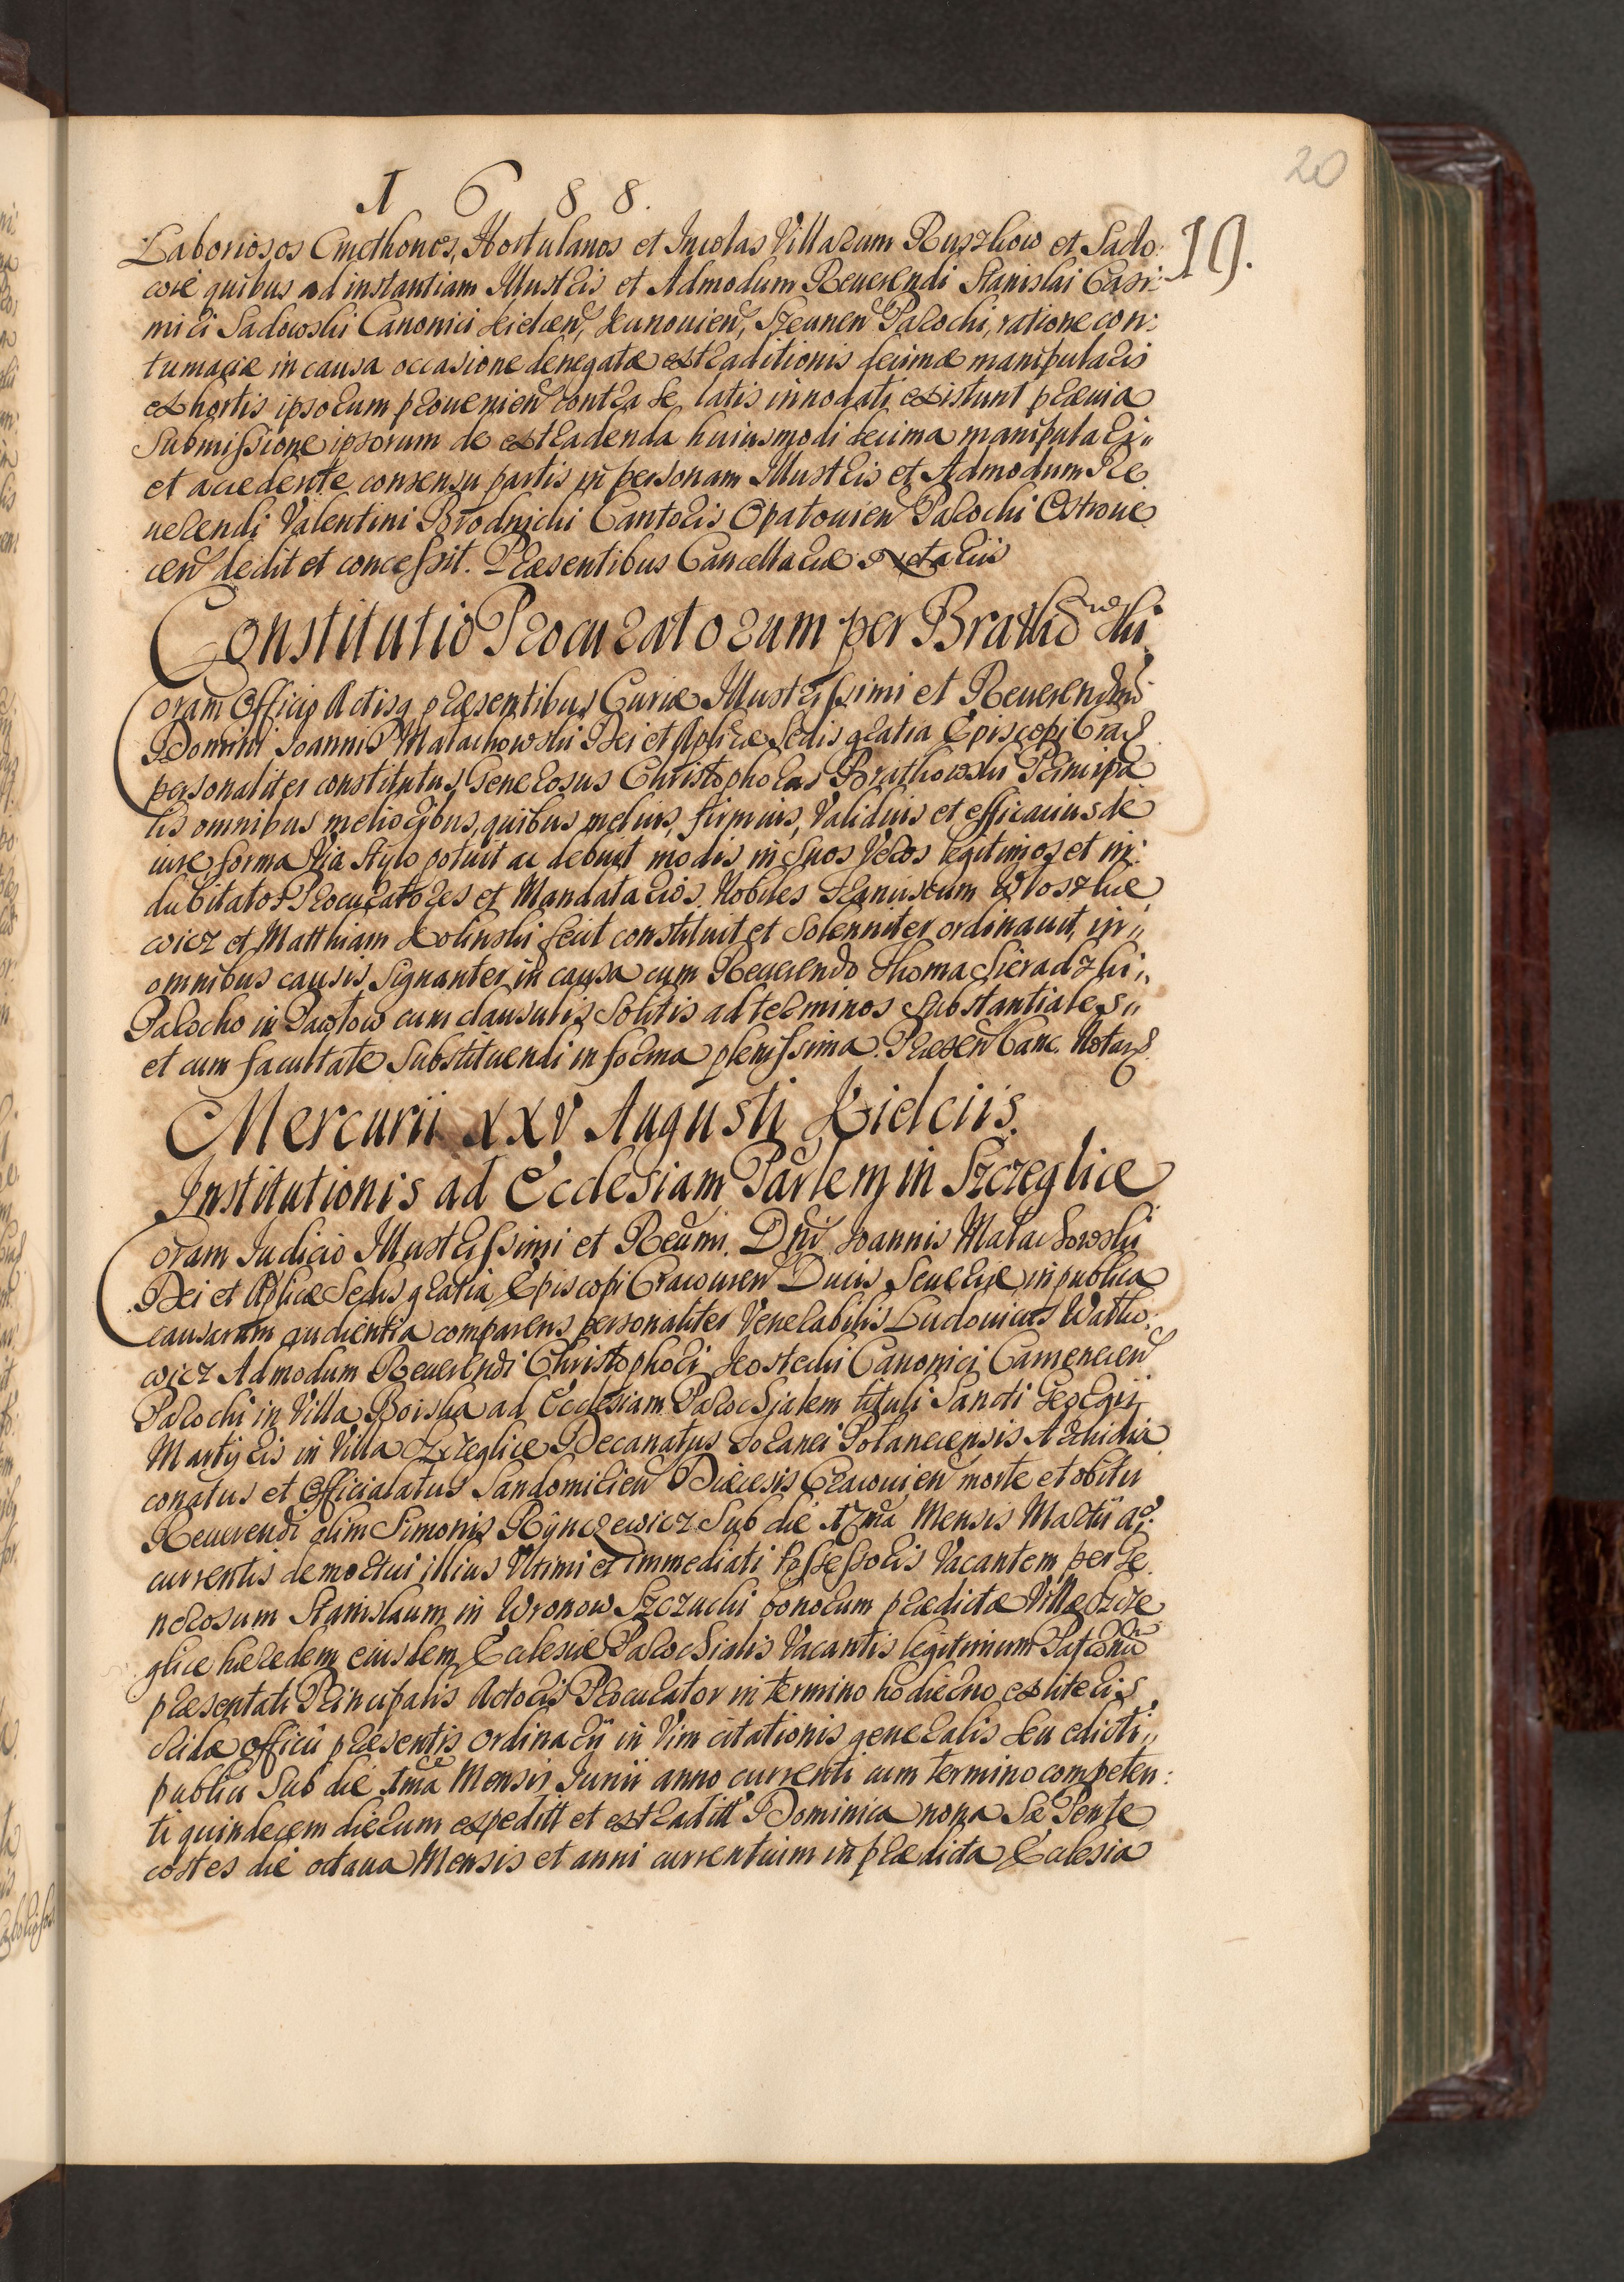 20
1 6 8 8.
19.
Laboriosos Cmethones, Hortulanos et Incolas Villarum Ruszkow et Sado:
wie quibus ad instantiam Illustris et Admodum Reuerendi Stanislai Casi:
miri Sadowski Canonici Kielcen, Kunouien, Parochi, ratione con:
tumaciæ in causa occasione denegatæ extraditionis decimæ manipularis
ex hortis ipsorum prouenien contra se latis innodati existunt præuia
Submissione ipsorum de extradenda huiusmodi decima manipulari
et accedente consensu partis in personam Illustris et Admodum Re
uerendi Valentini Brodnicki Cantoris Opatouien Parochi Ostrouie
cen dedit et concessit. Præsentibus Cancellariæ Notariis
Constitutio Procuratorum per Bratkowski
Coram Officio Actisq præsentibus Curiæ Illustrissimi et Reuerendmi
Domini Joannis Małachowski Dei et Aplicæ Sedis gratia Episcopi Crac
personaliter constitutus Generosus Christophorus Bratkowski Principa
lis omnibus melioribus, quibus melius, firmius, Validius et efficacius de
iure, forma Via stylo potuit ac debuit modis, in Suos Veros legitimos et in:
dubitatos Procuratores et Mandatarios. Nobiles Franciscum Wloszkie
wicz et Matthiam Kolinski fecit constituit et Solenniter ordinauit, in
omnibus causis, Signanter in causa cum Reuerendo Thoma Sieradzki
Parocho in Pawłow cum clausulis Solitis ad terminos Substantiales
et cum facultate Substituendi in forma plenissima. Præsen Canc. Notar
Mercurii XXV Augusti Kielciis.
Institutionis ad Ecclesiam Parlem in Szczeglice
Coram Judicio Illustrissimi et Reumi. Dni Joannis Małachowski
Dei et Aplicæ Sedis gratia Episcopi Cracouien Ducis Seueriæ in publica
causarum audientia comparens personaliter Venerabilis Ludouicus Watko:
wicz Admodum Reuerendi Christophori Kostecki Canonici Camenecen
Parochi in Villa Boiska ad Ecclesiam Parochialem tituli Sancti Georgij
Martyris in Villa Szczeglice Decanatus foranei Połanecensis Archidia
conatus et Officialatus Sandomirien Diæcesis Cracouien morte et obitu
Reuerendi olim Simonis Rynczewicz Sub die 17ma Mensis Martii ai:
currentis demortui illius Vltimi et immediati Possessoris Vacantem per Ge
nerosum Stanislaum in Wronow Szczucki bonorum prædictæ Villæ Szcze
glice hæredem eiusdem Ecclesiæ Parochialis Vacantis legitimum Patronū
præsentati Principalis Actoris Procurator in termino hodierno ex literis
Cridæ officii præsentis ordinarij in Vim citationis generalis seu edicti
publici Sub die 1ma Mensis Junii anno currenti cum termino competen:
ti quindecem dierum expeditt et extraditt Dominica nona Pente
costes die octaua Mensis et anni currentium in prædicta Ecclesia